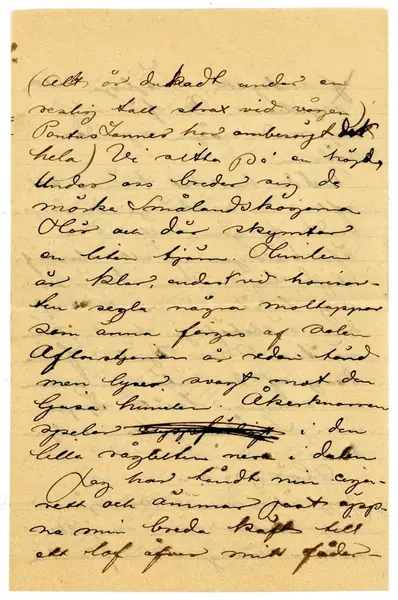 (Allt är dukadt under en
reslig tall strax vid vägen)
Pontus Lanner har ombesörgt det
hela) Vi sitta på en höjd,
Under oss breder sig de
mörka Smålandskogarna
Här och där skymtar
en liten tjärn. Himlen
är klar, endast vid horison-
ten segla några moltappar
som ännu färgas af solen
Aftonstjernan är redan tänd
men lyser svagt mot den
ljusa himlen. Åkerknarren
spelar i den
lilla rågbiten nere i dalen
Jag har tändt min cigar-
rett och ämnar just öpp-
na min breda käft till
ett lof öfver mitt fäder-